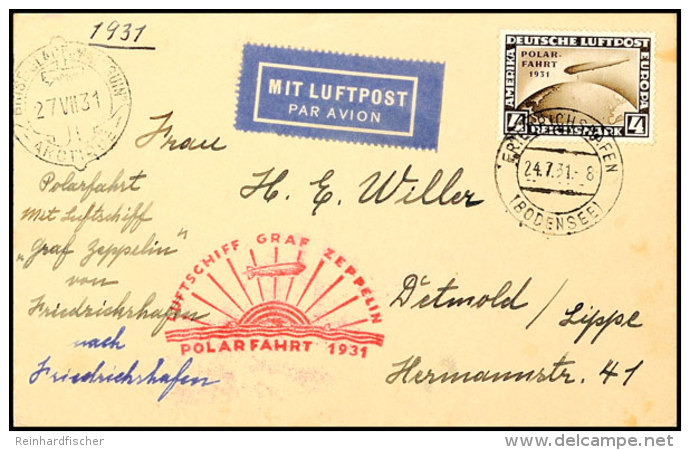 1931
27 VII 31
MIT LUFTPOST
PAR AVION
DEUTSCHE LUFTPOST
AMERIKA
EUROPA
POLAR-
FAHRT
1931
4 REICHSMARK 4
FRIEDRICHSHAFEN
24.7.31.-8
(BODENSEE)
Frau
H. E. Willer
Detmold / Lippe
Hermannstr. 41
Polarfahrt
mit Luftschiff
„Graf Zeppelin"
von
Friedrichshafen
nach
Friedrichshafen
LUFTSCHIFF GRAF ZEPPELIN
POLARFAHRT 1931
Reinhardfischer
delcampe.net